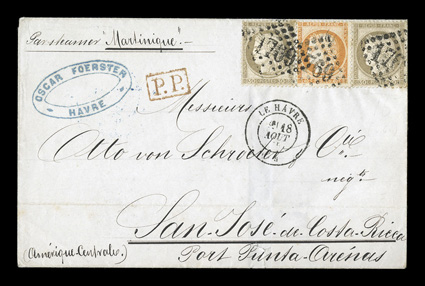 Par steamer "Martinique".
OSCAR FOERSTER
HAVRE
P.P.
1769
1769
LE HAVRE
18
AOUT
Messieurs
Otto von Schroeter & Cie
negts
San José de Costa Ricca
(Amérique Centrale.)
Port Punta-Arénas